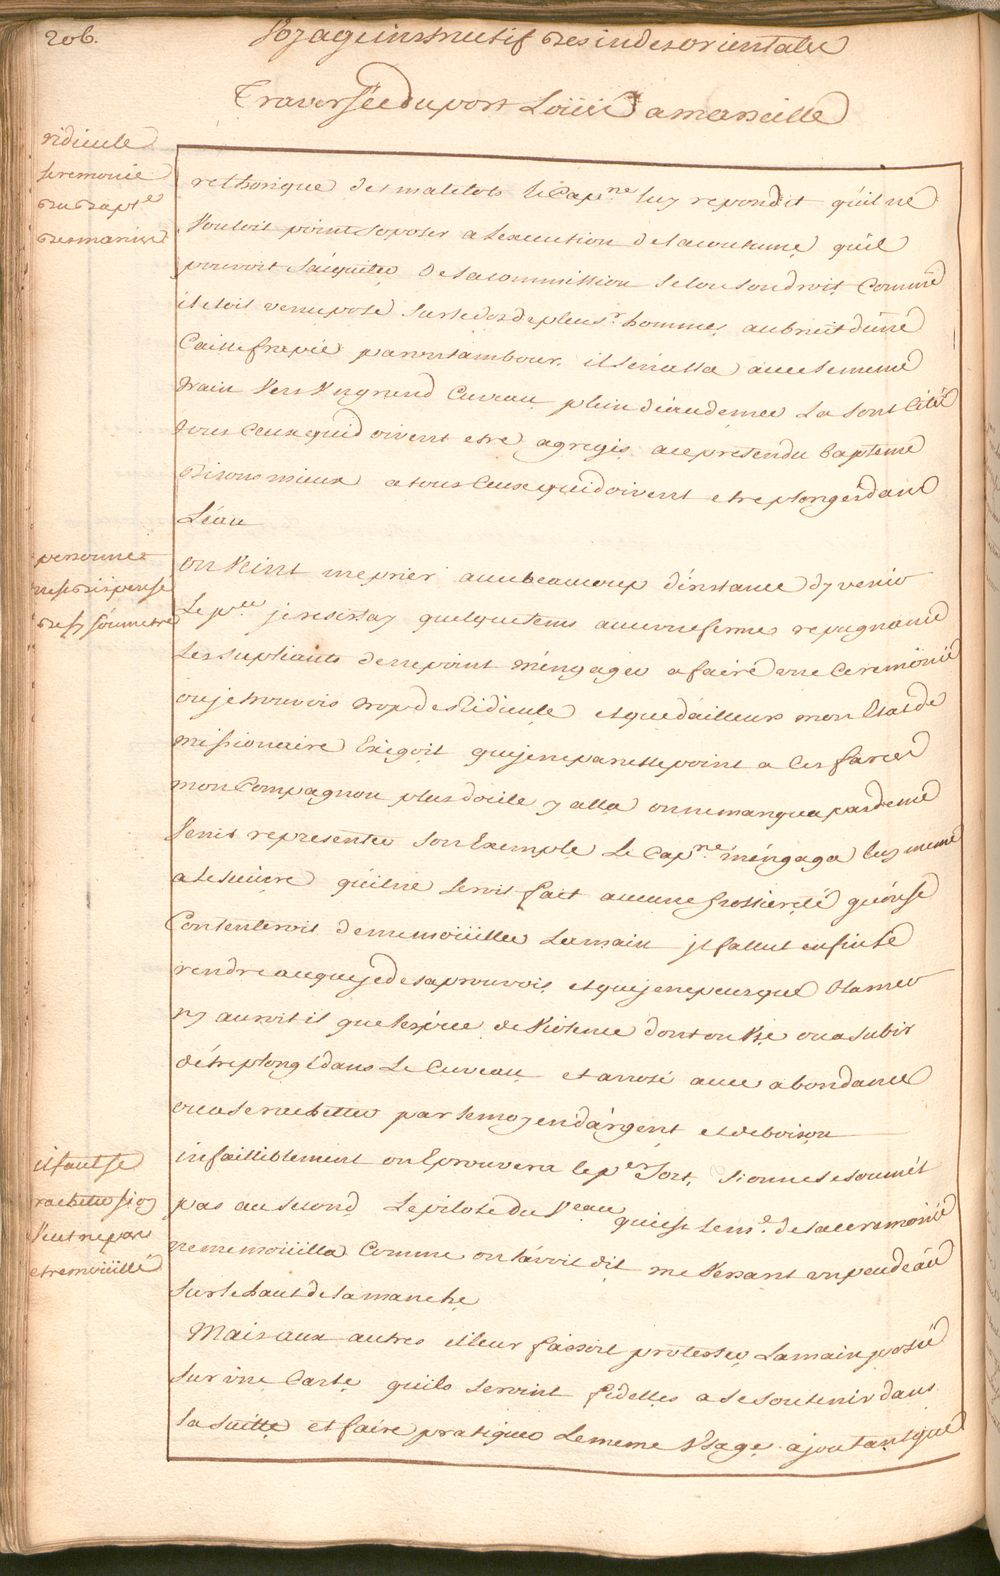 206.
Voyage instructif des indes orientales
Traversée du port Loüis a marseille
ridicule
seremonie
du bapt.e
des marins
rethorique des matelots le Cap.ne luy repondit qu'il ne
Vouloit point s'oposer a l'execution de la coutume qu'il
pouvoit s'aiquiter de sa commission selon son droit Comme
il etoit venu posé sur le dos de plusrs. hommes au bruit d'une
Caisse frapée par un tambour. il s'en alla avec le meme
train Vers Un grand Cuveau plein d'eau de mer La sont Cités
tous Ceux qui doivent etre agregés au pretendu bapteme
Disons mieux a tous Ceux qui doivent etre plongés dans
L'eau
personne
n'est dispensé
de s'y soumetre
on Vint me prier avec beaucoup d'instance d'y venir
Le p.er je resistay quelque tems avec une ferme repugnance
Les supliants de ne point m'engager a faire une Ceremonie
ou je trouvois trop de Ridicule et que d'ailleurs mon Etat de
missionaire Exigoit que je ne parusse point a Ces farces
mon Compagnon plus docile y alla on ne manqua pas de me
Venir representer son Exemple Le Cap.ne m'engaga luy meme
a le suivre qu'il ne seroit fait aucune grossiereté qu'on se
Contenteroit de me moüiller La main il fallut enfin se
rendre a ce que je desaprouvois et que je ne peus que blamer
n'y auroit il que l'espece de Violence dont on Use on a subir
d'etre plongé dans Le Cuveau et arrosé avec abondance
ou a se racheter par le moyen d'argent et de boison
il faut se
racheter si on
Veut ne pas
etre moüillé
infailliblement on Eprouvera le p.er sort, si on ne se soumet
pas au second Le pilote du Veau qui est le m.e de la ceremonie
ne me moüilla Comme on l'avoit dit me Versant un peu d'eau
sur le haut de la manche
Mais aux autres il leur faisoit protester La main posée
sur une Carte qu'ils seroint fidelles a se soutenir dans
la suitte et faire pratiquer Le meme Usage ajoutant que